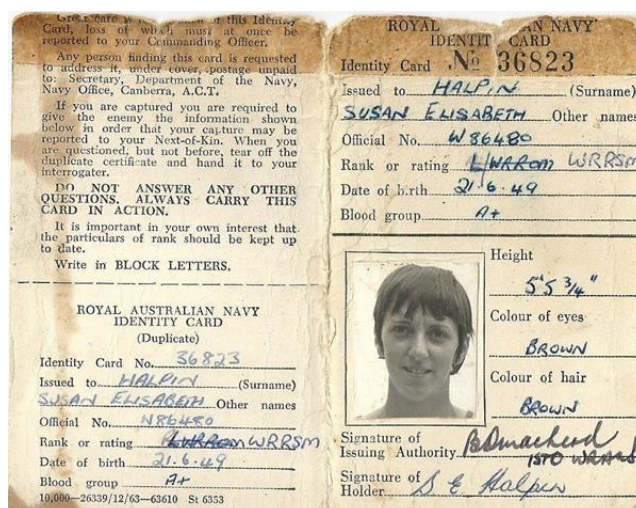 Great care is
of this Identity
Card, loss of which must at once be
reported to your Commanding Officer.
Any person finding this card is requested
to address it, under cover, postage unpaid
to: Secretary, Department of the Navy,
Navy Office, Canberra, A.C.T.
If you are captured you are required to
give the enemy the information shown
below in order that your capture may be
reported to your Next-of-Kin. When you
are questioned, but not before, tear off the
duplicate certificate and hand it to your
interrogater.
DO NOT ANSWER ANY OTHER
QUESTIONS. ALWAYS CARRY THIS
CARD IN ACTION.
It is important in your own interest that
the particulars of rank should be kept up
to date.
Write in BLOCK LETTERS.
ROYAL AUSTRALIAN NAVY
IDENTITY CARD
(Duplicate)
Identity Card No. 36823
Issued to HALPIN (Surname)
SUSAN ELISABETH Other names
Official No.
Rank or rating WRRSM
Date of birth 21.6.49
Blood group A+
10,000—26339/12/63—63610 St 6353
ROYAL AUSTRALIAN NAVY
IDENTITY CARD
Identity Card No 36823
Issued to HALPIN (Surname)
SUSAN ELISABETH Other names
Official No. W86480
Rank or rating WRRSM
Date of birth 21.6.49
Blood group A+
Height
5'5 3/4"
Colour of eyes
BROWN
Colour of hair
BROWN
Signature of
Issuing Authority
Signature of
Holder S E Halpin